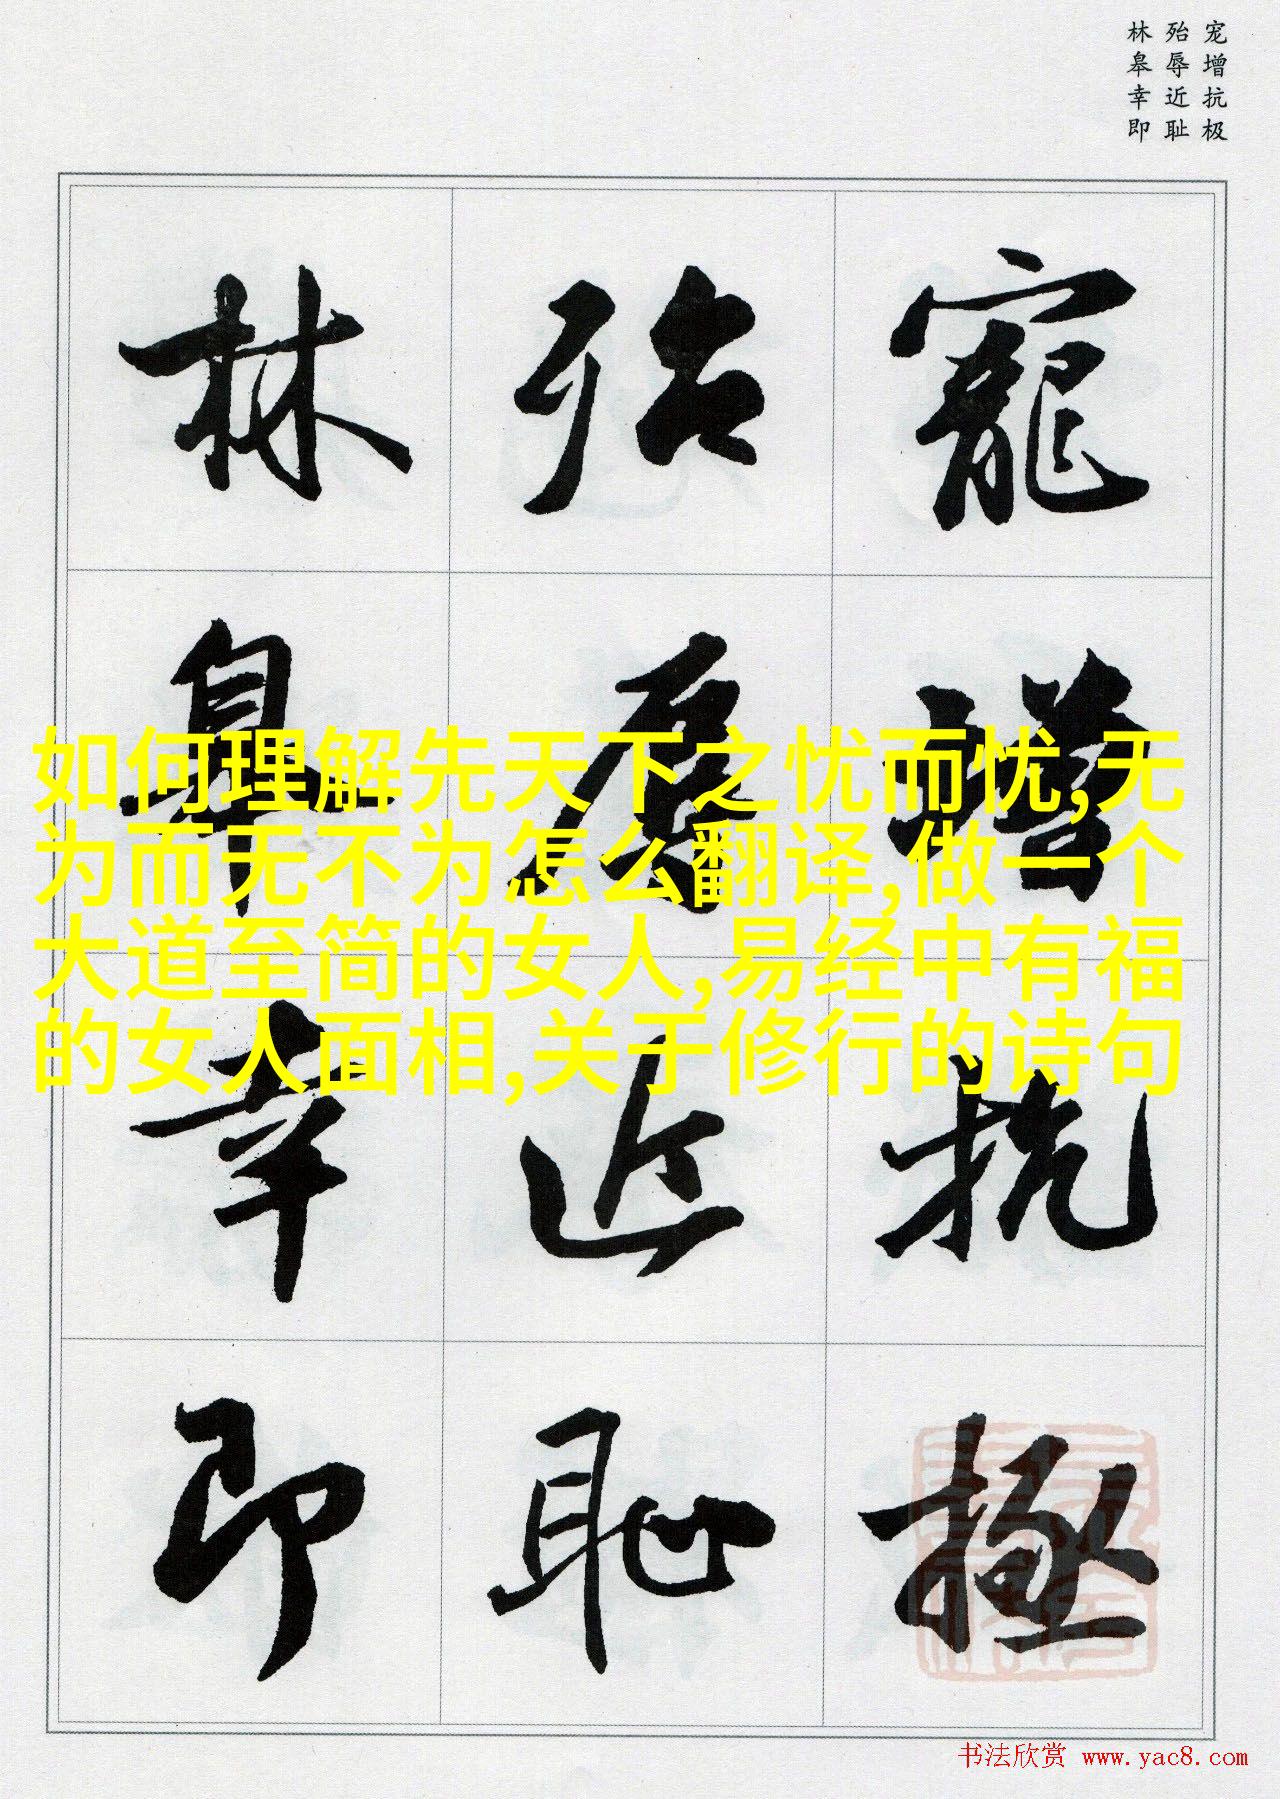 宠增抗极
殆辱近耻
林皋幸即
寵增抗極
殆辱近恥
林皋幸即
如何理解先天下之忧而忧,无
为而无不为怎么翻译,做一个
大道至简的女人,易经中有福
的女人面相,关于修行的诗句
书法欣赏 www.yac8.com